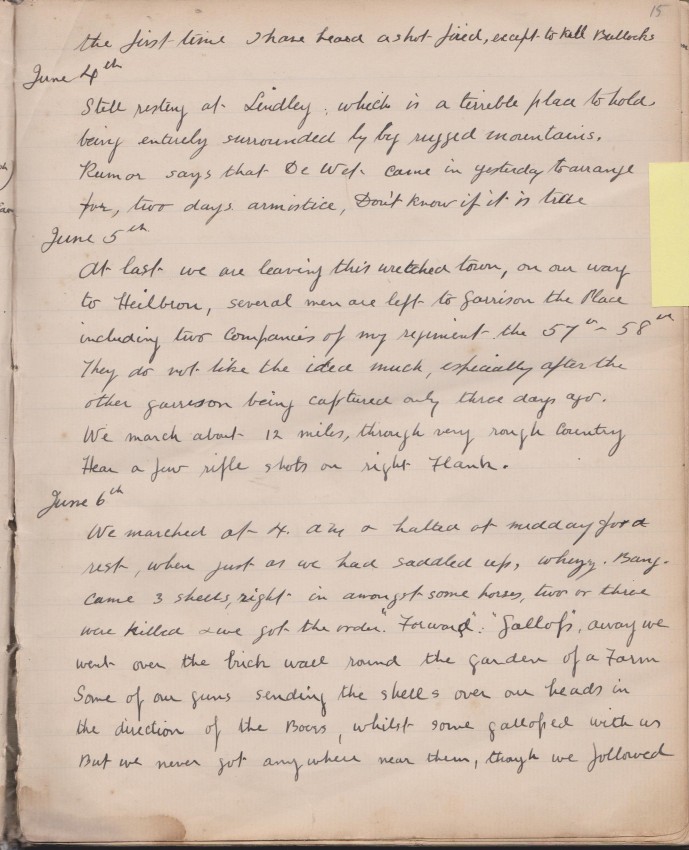 15
the first time I have heard a shot fired, except to kill Bullocks
June 4th
Still resting at Lindley, which is a terrible place to hold,
being entirely surrounded by big rugged mountains.
Rumor says that De Wet came in yesterday to arrange
for, two days armistice, Don't know if it is true
June 5th
At last we are leaving this wretched town, on our way
to Heilbron, several men are left to Garrison the Place
including two Companies of my regiment the 57th & 58th
They do not like the idea much, especially after the
other garrison being captured only three days ago.
We march about 12 miles, through very rough Country
Hear a few rifle shots on right Flank.
June 6th
We marched at 4. am & halted at midday for a
rest, when just as we had saddled up, whizz. Bang.
came 3 shells, right in amongst some horses, two or three
were killed & we got the order". Forward". "Gallop", away we
went over the brick wall round the garden of a Farm
Some of our guns sending the shells over our heads in
the direction of the Boers, whilst some galloped with us
But we never got anywhere near them, though we followed